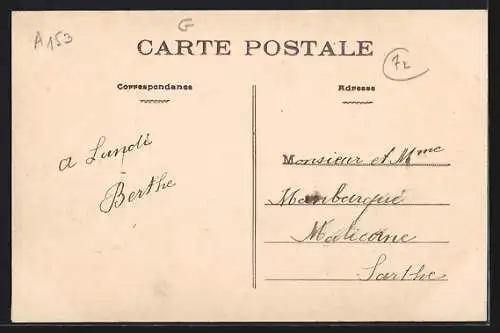 A153
G
CARTE POSTALE
72
Correspondance
Adresse
a Lundi
Berthe
Monsieur et Mme
Manbarqué
Malicorne
Sarthe